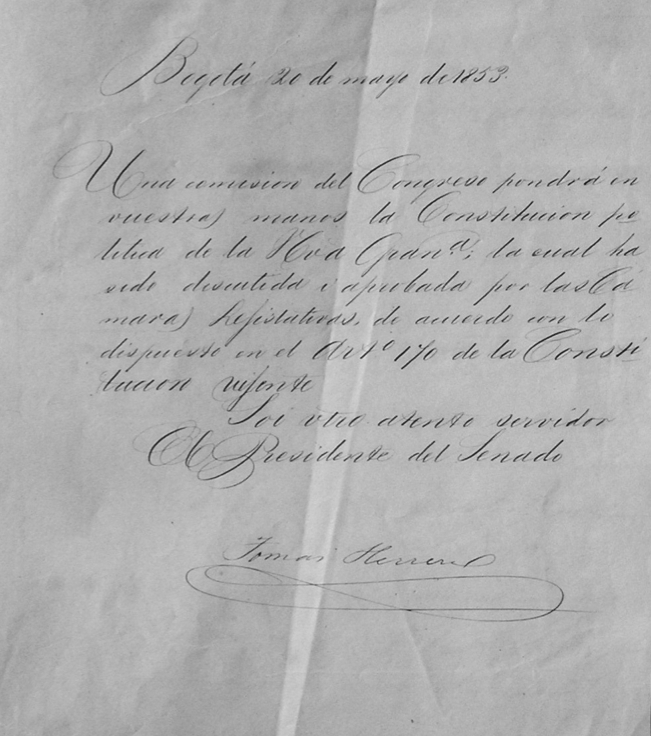 Bogotá 20 de mayo de 1853.
Una comision del Congreso pondrá en
vuestras manos la Constitucion po
litica de la Nva Gran.ª; la cual ha
sido discutida i aprobada por las Cá
maras Lejislativas, de acuerdo con lo
dispuesto en el Art.º 170 de la Consti
tucion vijente
Soi vtro atento servidor
El Presidente del Senado
Tomas Herrera